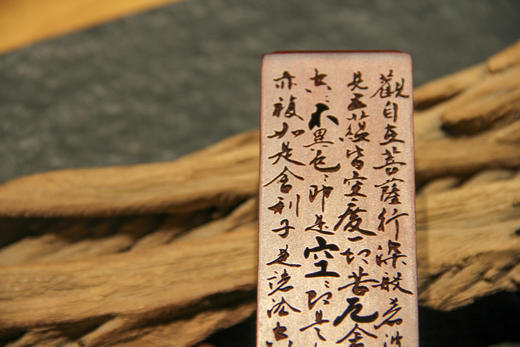 觀自在菩薩行深般若波
見五蘊皆空度一切苦厄舍
空〻不異色〻即是空〻即是
亦復如是舍利子是諸法空